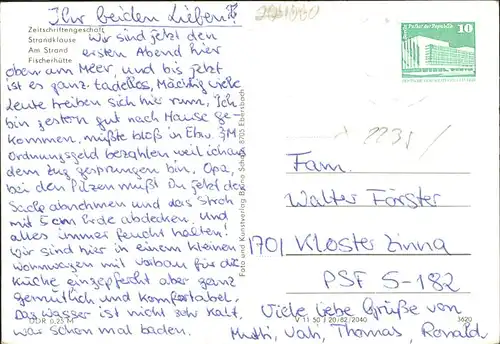 Ihr beiden Lieben!
Zeitschriftengeschäft
Strandklause
Am Strand
Fischerhütte
Wir sind jetzt den
ersten Abend hier
oben am Meer, und bis jetzt
ist es ganz tadellos, Mächtig viele
Leute treiben sich hier rum. Ich
bin gestern gut nach Hause ge-
kommen, mußte bloß in Ebw. 3M
Ordnungsgeld bezahlen weil ich aus
dem Zug gesprungen bin. Opa,
bei den Pilzen mußt Du jetzt die
Säcke abnehmen und das Stroh
mit 5 cm Erde abdecken. Und
alles immer feucht halten!
Wir sind hier in einem kleinen
Wohnwagen mit Vorbau für die
Küche eingepfercht aber ganz
gemütlich und komfortabel.
Das Wasser ist nicht sehr kalt,
war schon mal baden.
DDR 0,25 M
Foto und Kunstverlag Benno Scholz 8705 Ebersbach
Palast der Republik
10
2235/
Fam.
Walter Förster
1701 Kloster Zinna
PSF 5-182
Viele liebe Grüße von
Mutti, Vati, Thomas, Ronald
V 11 50 J 20/82/2040
3620